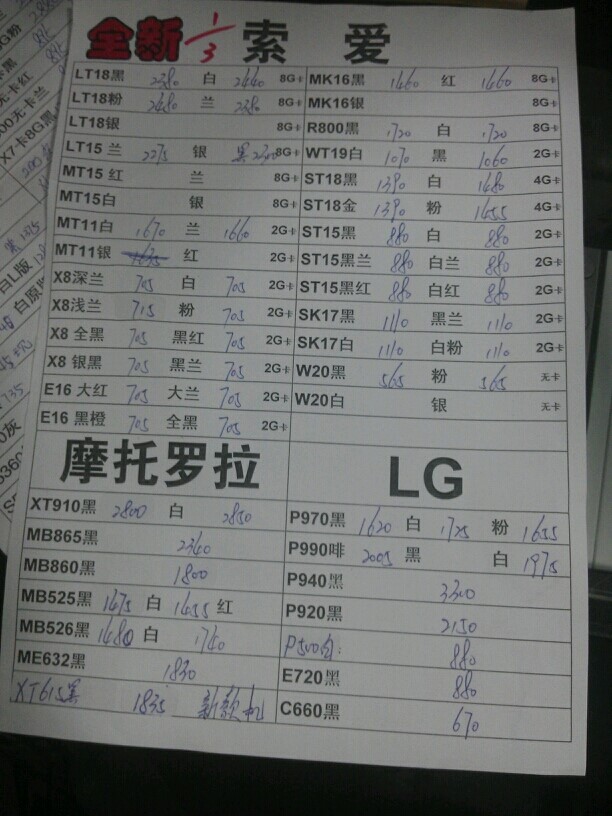 全新 1/3 索 爱
LT18黑 2380 白 2440 8G卡
LT18粉 2480 兰 2380 8G卡
LT18银 8G卡
LT15 兰 2275 银 黑2300 8G卡
MT15 红 兰 8G卡
MT15白 银 8G卡
MT11白 1670 兰 1660 2G卡
MT11银 红 2G卡
X8深兰 705 白 705 2G卡
X8浅兰 715 粉 705 2G卡
X8 全黑 705 黑红 705 2G卡
X8 银黑 705 黑兰 705 2G卡
E16 大红 705 大兰 705 2G卡
E16 黑橙 705 全黑 705 2G卡
MK16黑 1460 红 1460 8G卡
MK16银 8G卡
R800黑 1720 白 1720 8G卡
WT19白 1070 黑 1060 2G卡
ST18黑 1390 白 1480 4G卡
ST18金 1390 粉 1455 4G卡
ST15黑 880 白 880 2G卡
ST15黑兰 880 白兰 880 2G卡
ST15黑红 880 白红 880 2G卡
SK17黑 1110 黑兰 1110 2G卡
SK17白 1110 白粉 1110 2G卡
W20黑 565 粉 565 无卡
W20白 银 无卡
摩托罗拉
XT910黑 2800 白 2850
MB865黑 2340
MB860黑 1800
MB525黑 1475 白 1455 红
MB526黑 1480 白 1740
ME632黑 1830
XT615黑 1835 新款机
LG
P970黑 1620 白 1725 粉 1655
P990啡 2005 黑 白 1975
P940黑 3300
P920黑 2150
P500白: 880
E720黑 880
C660黑 670